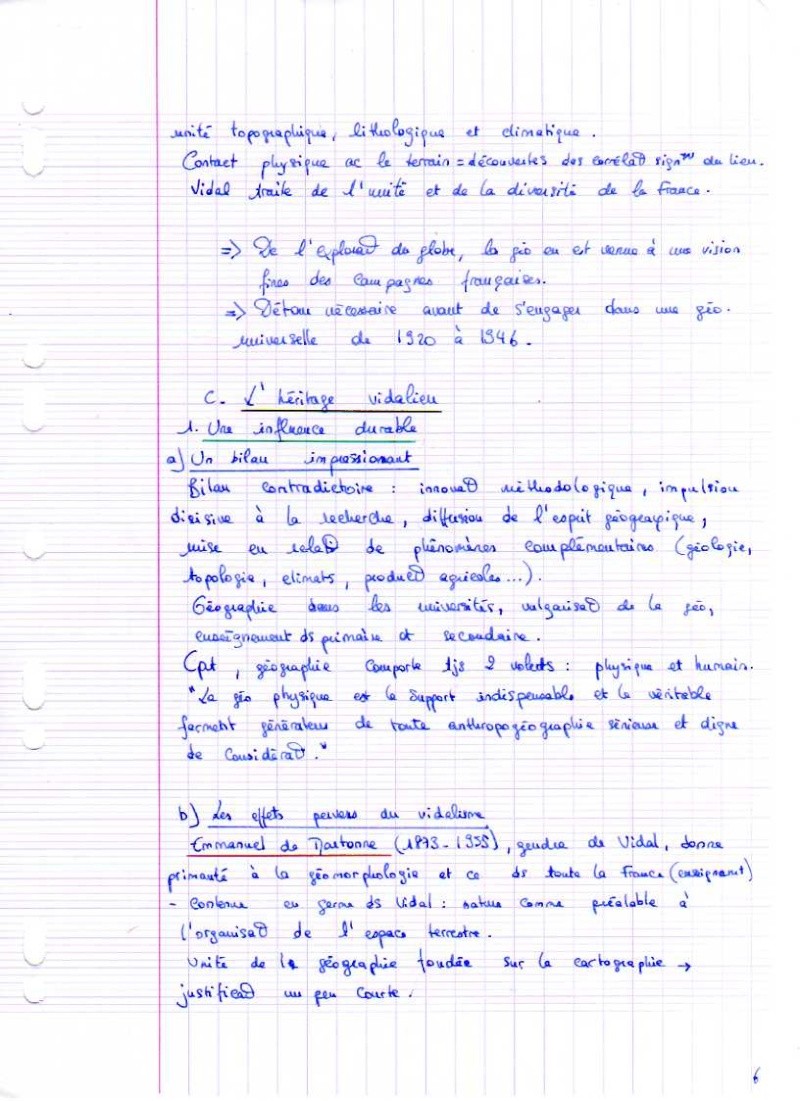 unité topographique, lithologique et climatique.
Contact physique ac le terrain = découvertes des corrélat° sign^ves du lieu.
Vidal traite de l'unité et de la diversité de la France.
=> De l'explorat° du globe, la géo en est venue à une vision
fines des campagnes françaises.
=> Détour nécessaire avant de s'engager dans une géo.
universelle de 1920 à 1946.
C. L'héritage vidalien
1. Une influence durable
a) Un bilan impressionant
Bilan contradictoire : innovat° méthodologique, impulsion
disisive à la recherche, diffusion de l'esprit géograpique,
mise en relat° de phénomènes complémentaires (géologie,
topologie, climats, product° agricoles...).
Géographie dans les universités, vulgarisat° de la géo,
enseignement ds primaire et secondaire.
Cpt, géographie comporte tjs 2 volets : physique et humain.
"La géo physique est le support indispensable et le véritable
ferment générateur de toute anthropogéographie sérieuse et digne
de considérat°."
b) Les effets pervers du vidalisme
Emmanuel de Martonne (1873-1955), gendre de Vidal, donne
primauté à la géomorphologie et ce ds toute la France (enseignant)
- Contenue en germe ds Vidal : nature comme préalable à
l'organisat° de l'espace terrestre.
Unité de la géographie fondée sur la cartographie →
justificat° un peu courte.
6